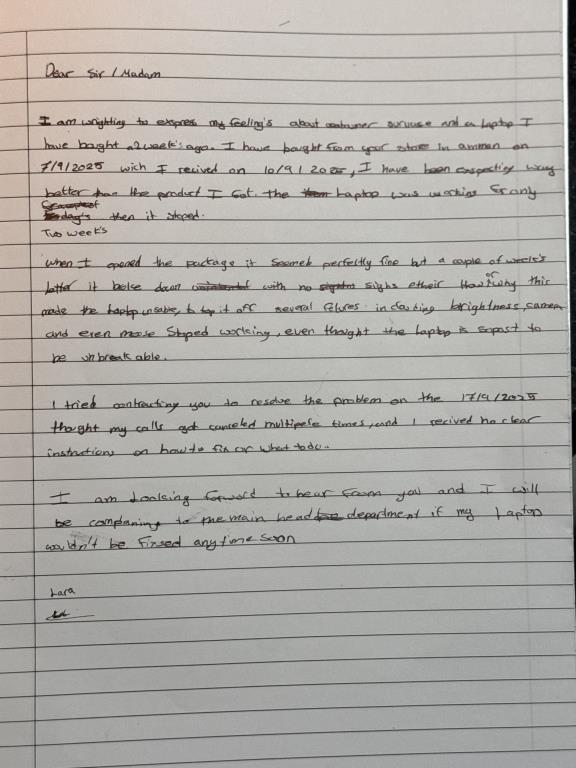 Dear Sir / Madam
I am wrighting to express my feeling's about costumer survuse and a laptop I
have bought a2week's ago. I have bought from your store in amman on
7/9/2025 wich I recived on 10/9/2025, I have been exspecting way
batter than the product I got. the Laptop was working for only
day's then it stoped.
Two week's
When I opened the package it seemeb perfectly fine but a couple of week's
latter it broke down with no sighs etheir How or why this
made the laptop unsable, to top it off several fetures including brightness, camera
and even mouse stoped working, even thought the laptop is sopost to
be unbreakable.
I tried contracting you to resolve the problem on the 17/9/2025
thought my calls got canceled multipele times, and I recived no clear
instructions on how to fix or what to do.
I am Looking forword to hear from you and I will
be complaning to the main head department if my Laptop
wouldn't be fixsed anytime soon
Lara